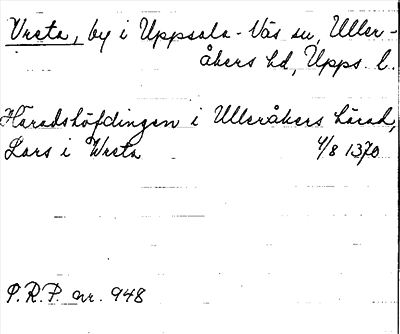 Vreta, by i Uppsala-Näs sn, Uller-
åkers hd, Upps. l.
Häradshöfdingen i Ulleråkers härad,
Lars i Wreta 4/8 1370
P.R.P. nr. 948